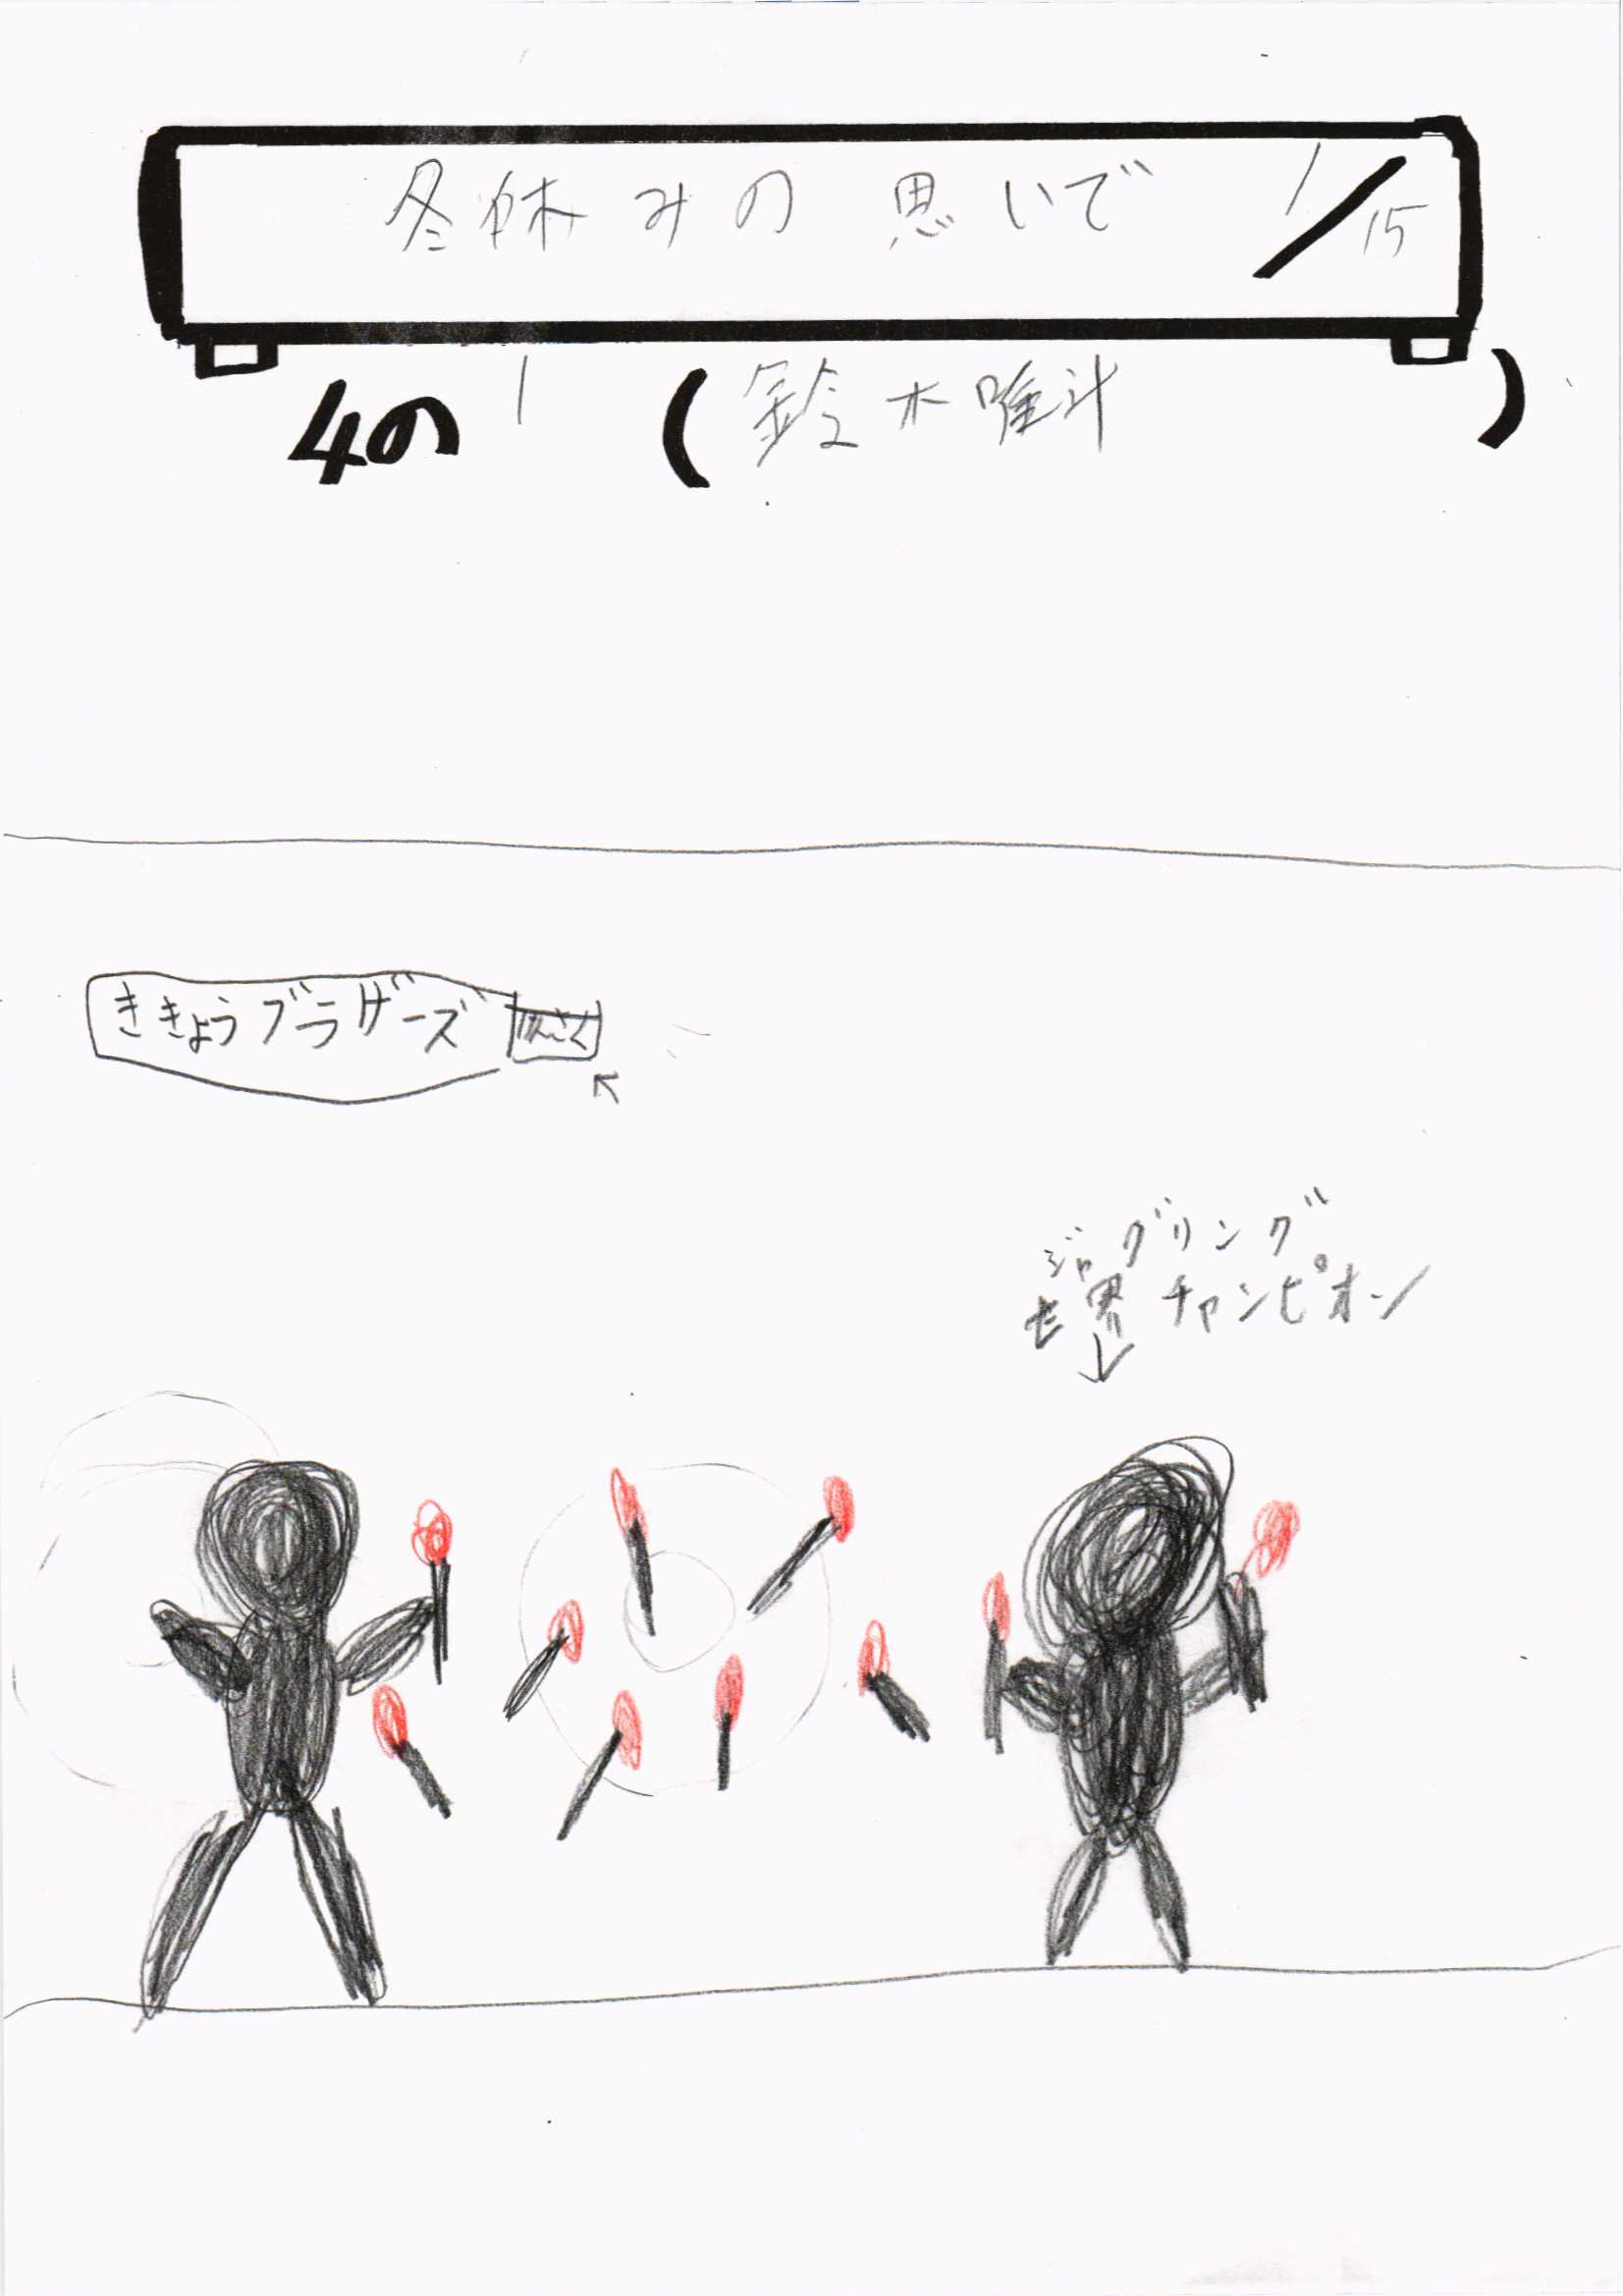 冬休みの思いで 1/15
4の1 (鈴木唯斗)
ききょうブラザーズ けんさく
ジャグリング
世界チャンピオン